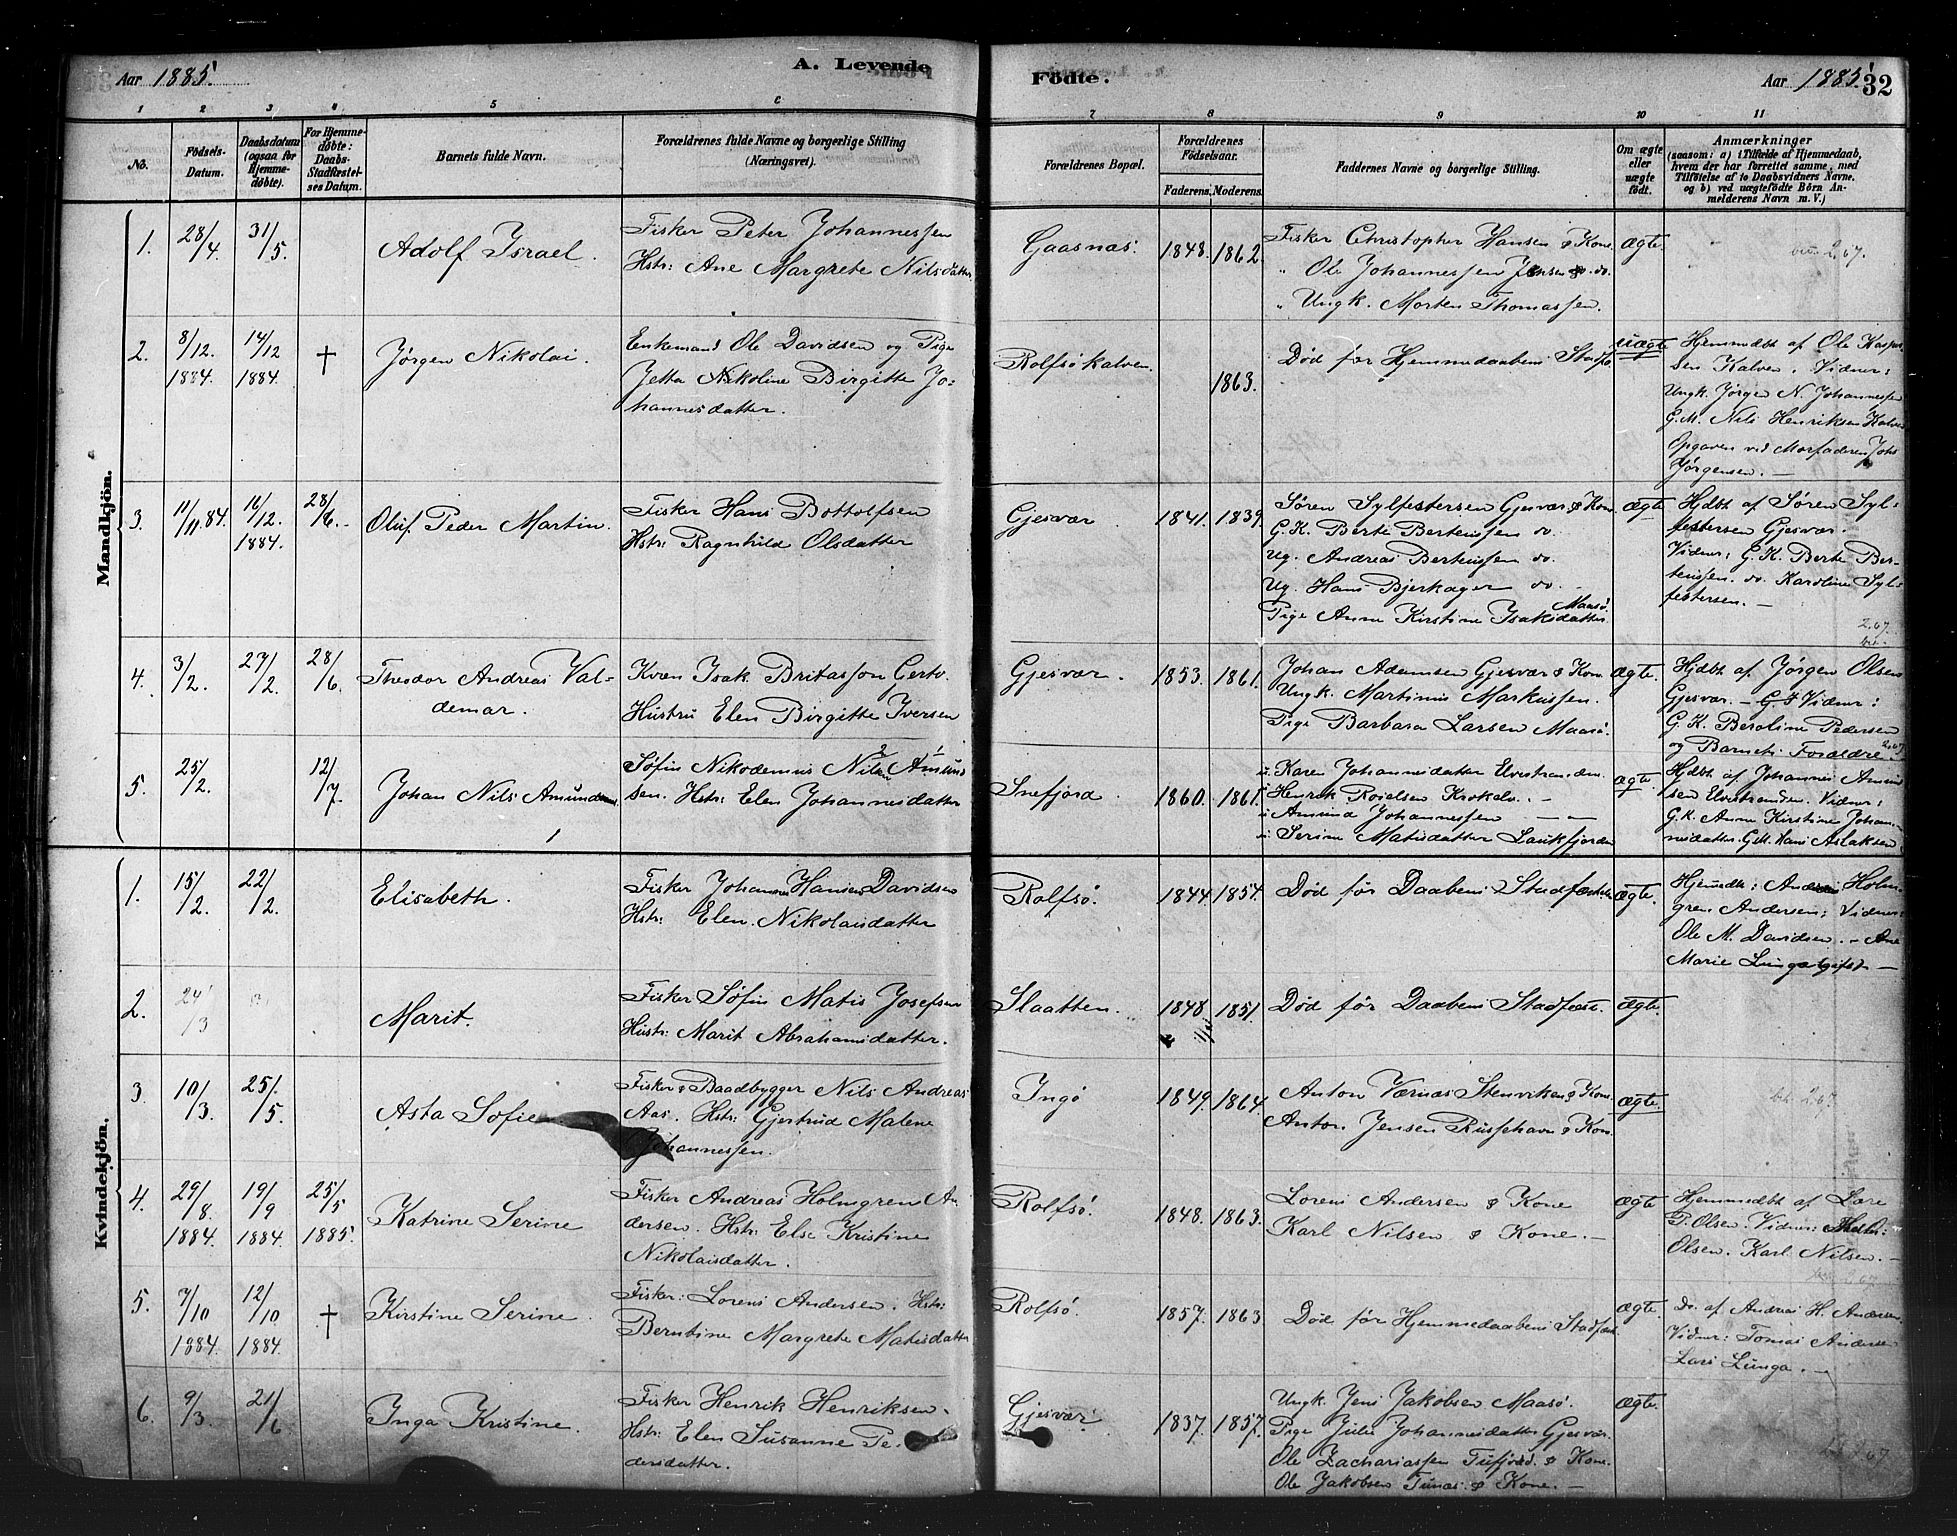 Aar 1885.
A. Levende
Födte.
Aar 1885.
32
1 2 3 4 5 6
7 8 9 10 11
No.
Födsels-Datum.
Daabsdatum (ogsaa for Hjemmedöbte).
For Hjemmedöbte: Daabs-Stadfæstelses Datum.
Barnets fulde Navn.
Forældrenes fulde Navne og borgerlige Stilling (Næringsvei).
Forældrenes Bopæl.
Forældrenes Födselsaar.
Faderens. Moderens.
Faddernes Navne og borgerlige Stilling.
Om ægte eller uægte födt.
Anmærkninger
(saasom: a) i Tilfælde af Hjemmedaab,
hvem der har forrettet samme, med
Tilföielse af to Daabsvidners Navne,
og b) ved uægtefödte Börn An-
melderens Navn m. V.)
Mandkjön.
1. 28/4 31/5 Adolf Israel.
Fisker Peter Johannessen
Hstr: Ane Margrete Nilsdatter
Gaasnæs. 1848. 1862.
Fisker Christopher Hansen & Kone
" Ole Johannessen Jensen & do.
" Ungk. Morten Thomassen.
ægte
2.67.
2. 8/12. 1884. 14/12 1884. † Jørgen Nikolai.
Enkemand Ole Davidsen og Pige
Jetta Nikoline Birgitte Jo-
hannesdatter.
Rolfsökalven. 1863.
Død før Hjemmedaabens Stadfæ.
uægte
Hjemmedbt af Ole Kasper-
sen Kalven. Vidner:
Ungk. Jørgen N. Johannessen
G.M. Nils Henriksen Kalven
Opgaven ved Morfaderen Johs
Jørgensen. —
3. 11/11. 84. 16/12. 1884. 28/6. Oluf Peder Martin.
Fisker Hans Bottolfsen
Hstr: Ragnhild Olsdatter
Gjesvær. 1841. 1839.
Søren Sylfestersen Gjesvær & Kone
G.K. Berte Berteussen do.
Ug. Andreas Berteussen do.
Ug. Hans Bjerkager do. —
Pige Anne Kirstine Isaksdatter Maasö.
ægte
Hjdbt af Søren Syl-
festersen Gjesvær.
Vidner: G.K. Berte Ber-
teussen. do. Karoline Syl-
festersen. —
2.67.
4. 3/2. 27/2. 28/6. Theodor Andreas Val-
demar.
Kven Isak Britasson Gertv.
Hustru Elen Birgitte Iversen
Gjesvær. 1853. 1861.
Johan Adamsen Gjesvær & Kone
Ungk. Martinus Markussen.
Pige Barbara Larsen Maasö.
ægte.
Hjdbt af Jørgen Olsen
Gjesvær. — Vidner:
G.K. Beroline Pedersen
og Barnets Forældre. 2.67
5. 25/2. 12/7. Johan Nils Amundsen
Søfin Nikodemus Nilsen Amund
sen. Hstr: Elen Johannesdatter
Snefjord. 1860. 1861.
Karen Johannesdatter Elvestranden.
Henrik Roielsen Krokelv. —
Amund Johannessen — —
Serine Matisdatter Laukfjorden
ægte.
Hjdbt af Johannes Amund
sen Elvestranden. Vidner:
G.K. Anne Kirstine Johan-
nesdatter. G.M. Hans Aslaksen
Kvindekjön.
1. 15/2. 22/2. Elisabeth.
Fisker Johannes Hansen Davidsen
Hstr: Elen Nikolaisdatter
Rolfsö. 1844. 1854.
Død før Daabens Stadfæstelse
ægte.
Hjemmedbt: Anders Holm-
gren Andersen; Vidner:
Ole M. Davidsen. — Ane
Marie Lunga ugift —
2. 24/3 Marit.
Fisker Søfin Matis Josefsen
Hustr: Marit Abrahamsdatter.
Slaatten. 1848. 1851.
Død før Daabens Stadfæst.
ægte.
3. 10/3. 25/5. Asta Sofie
Fisker & Baadbygger Nils Andreas
Aas. Hstr: Gjertrud Malene
Johannessen.
Ingö 1849. 1864.
Anton Værnæs Stenviken & Kone.
Anton Jensen Russehavn & Kone
ægte.
2.67.
4. 29/8. 1884. 19/9 1884. 25/5 1885. Katrine Serine
Fisker Andreas Holmgren An-
dersen. Hstr: Else Kristine
Nikolaisdatter.
Rolfsö. 1848. 1863.
Lorens Andersen & Kone
Karl Nilsen & Kone. —
ægte
Hjemmedbt af Lære
P. Olsen. Vidner:
Olsen. Karl Nilsen. —
5. 7/10 1884. 12/10 1884. † Kirstine Serine.
Fisker: Lorens Andersen. Hstr:
Berntine Margrete Matisdatter
Rolfsö. 1857. 1863
Død før Hjemmedaabens Stadfæst.
ægte.
Do. af Andreas H. Andersen
Vidner: Tomas Andersen
Lars Lunga. —
6. 9/3. 21/6 Inga Kristine.
Fisker Henrik Henriksen.
Hstr: Elen Susanne Pe-
dersdatter.
Gjesvær. 1837. 1857.
Ungk. Jens Jakobsen Maasö.
Pige Julie Johannesdatter Gjesvær.
Ole Zachariassen Tufjord. & Kone.
Ole Jakobsen Tunæs. & Kone. —
ægte.
2.67